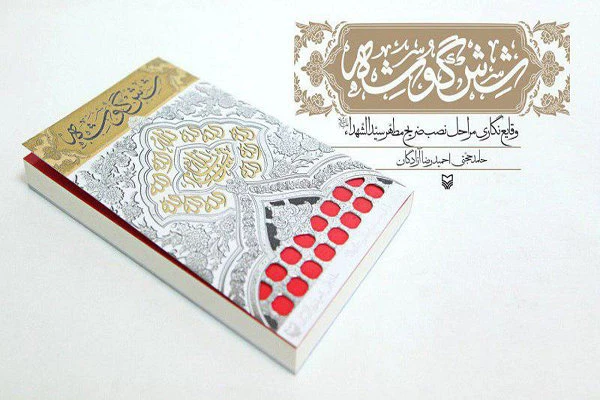 شش گوشه
وقایع‌نگاری مراحل نصب ضریح مطهر سیدالشهداء
حامد حجتی | حمیدرضا آزادگان
شش گوشه